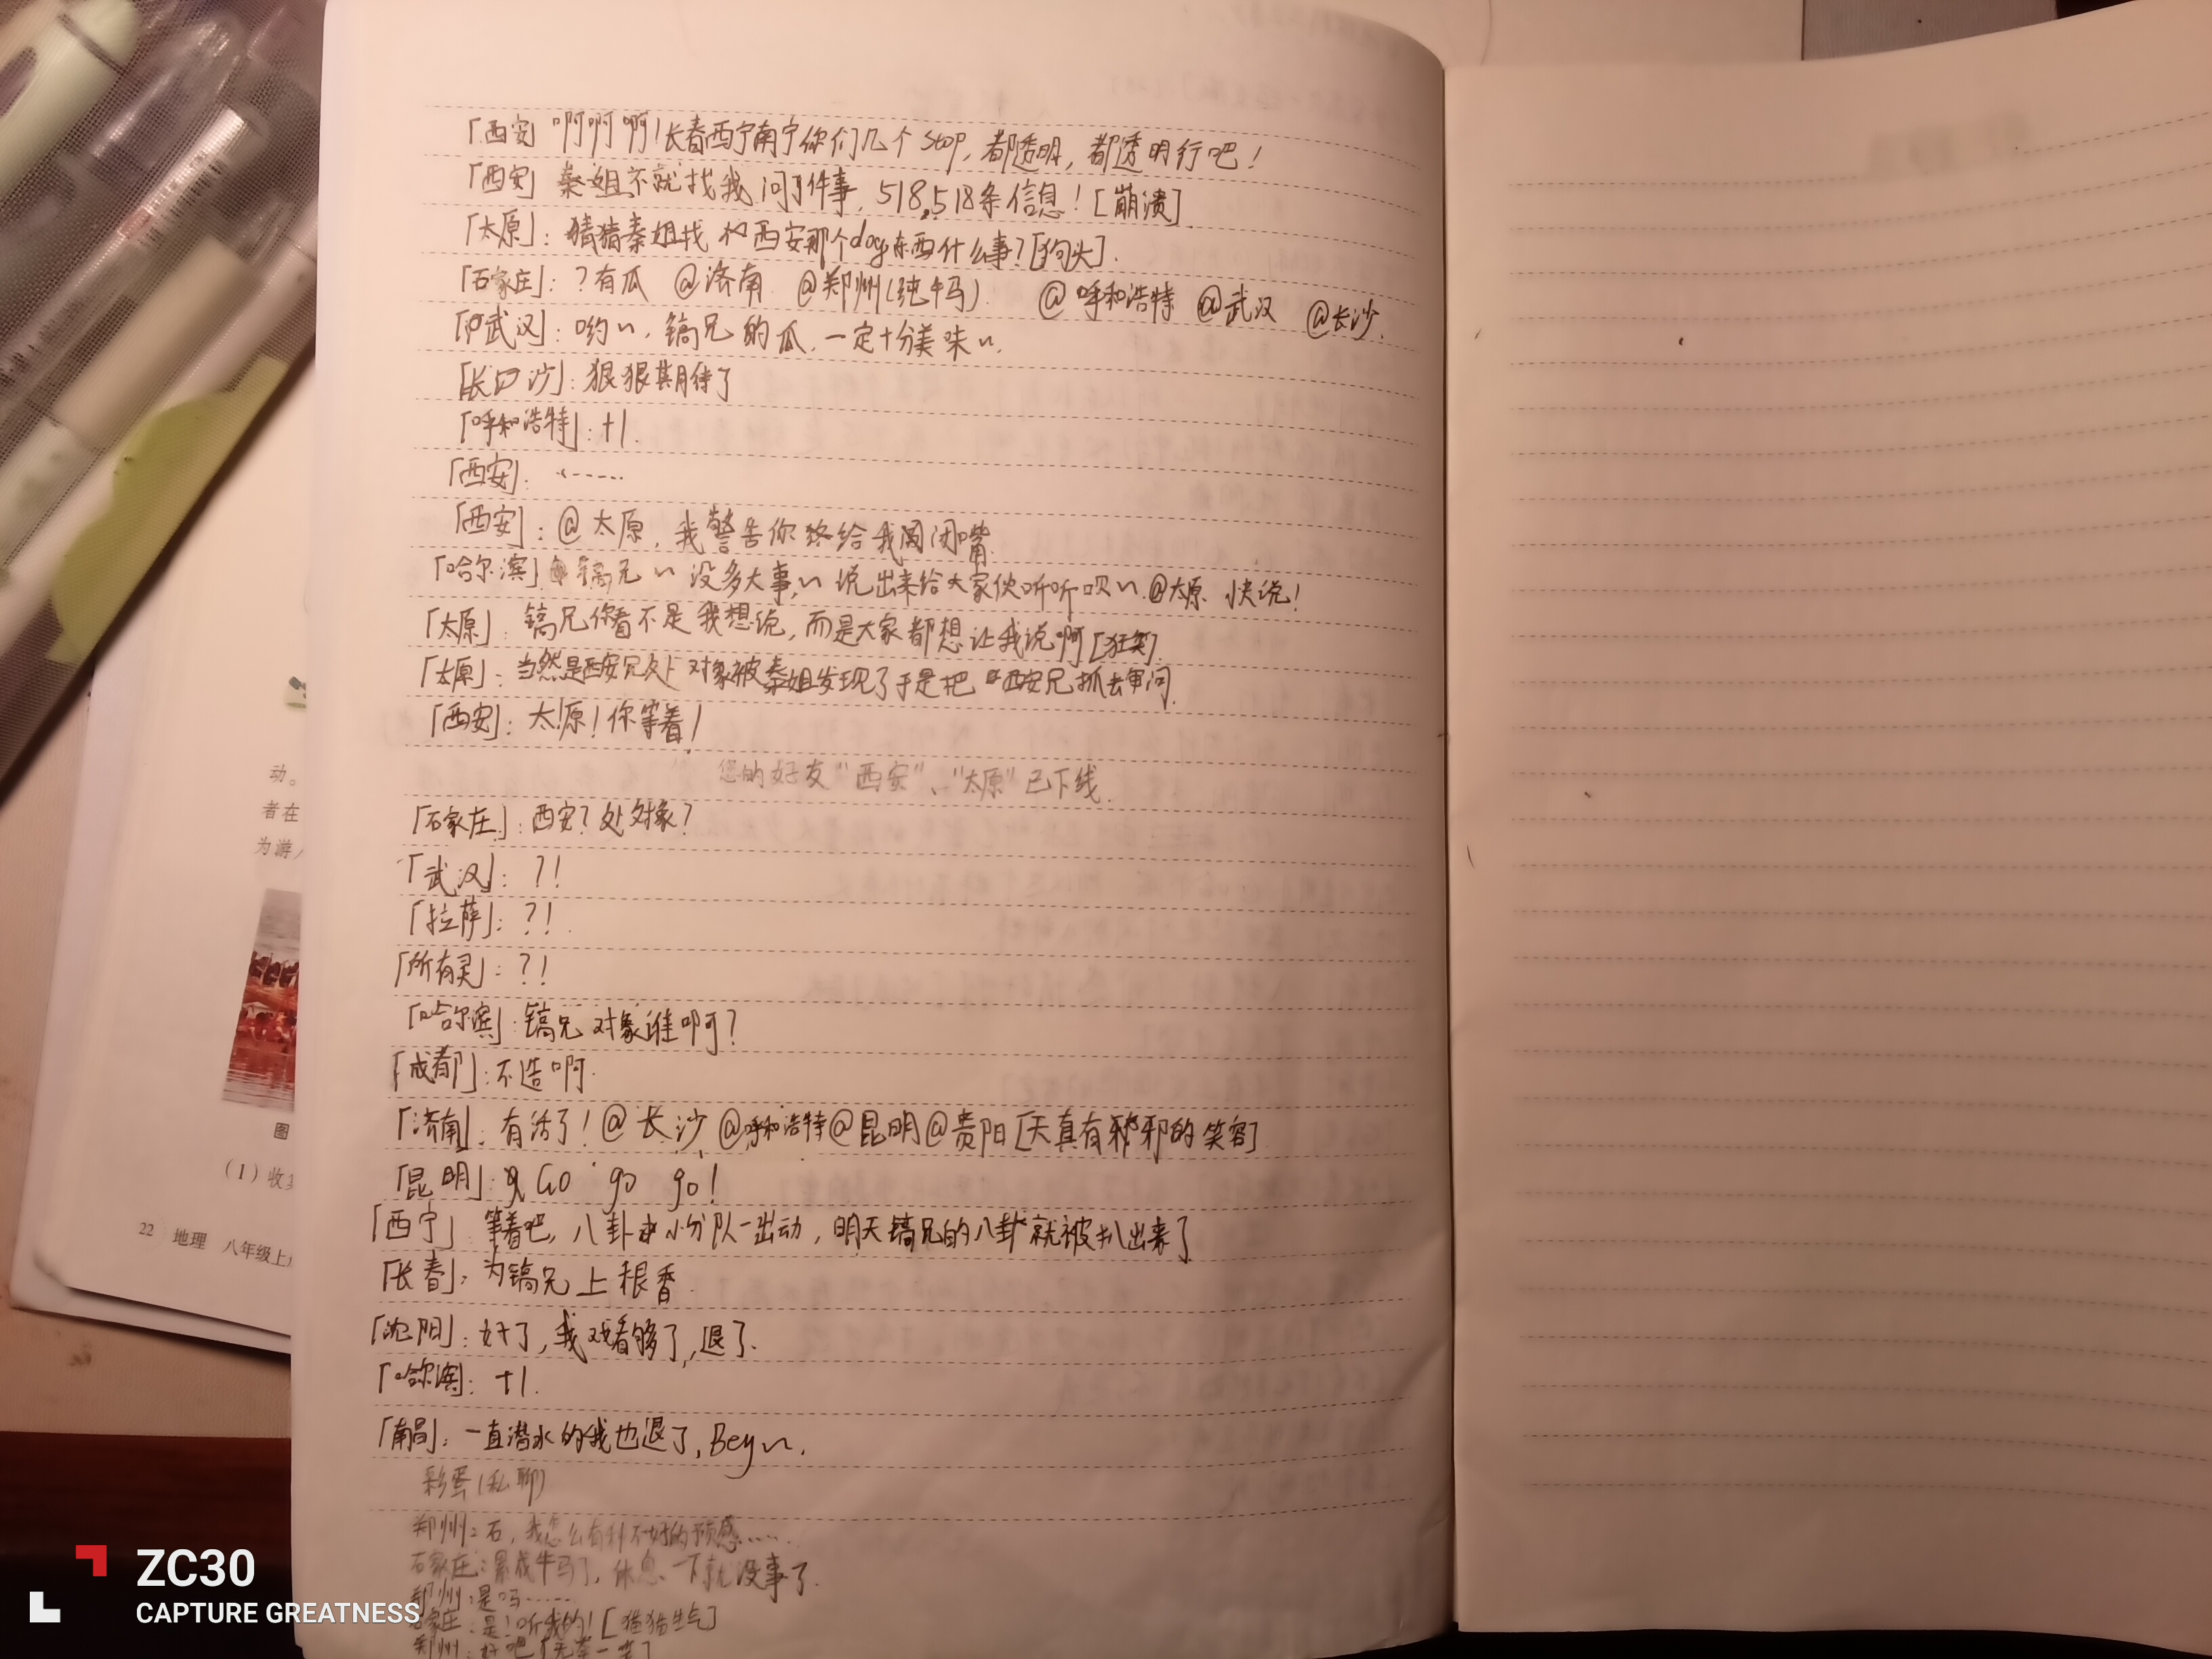 「西安」啊啊啊！长春西宁南宁你们几个stop，都透明，都透明行吧！
「西安」秦姐不就找我问了件事，518,518条信息！[崩溃]
「太原」：猜猜秦姐找西安那个dog东西什么事？[狗头].
「石家庄」：？有瓜 @济南 @郑州(纯牛马) @呼和浩特 @武汉 @长沙.
「武汉」：哟~，镐兄的瓜，一定十分美味~.
「长沙」：狠狠期待了
「呼和浩特」：+1.
「西安」：……
「西安」：@太原，我警告你给我闭嘴
「哈尔滨」镐兄~没多大事，~说出来给大家伙听听呗~@太原 快说！
「太原」：镐兄你看不是我想说，而是大家都想让我说啊[狂笑].
「太原」：当然是西安兄处对象被秦姐发现了于是把西安兄抓去审问.
「西安」：太原！你等着！
您的好友“西安”、“太原”已下线.
「石家庄」：西安？处对象？
「武汉」：？！
「拉萨」：？！
「所有灵」：？！
「哈尔滨」：镐兄对象谁啊？
「成都」：不造啊.
「济南」：有活了！@长沙@呼和浩特@昆明@贵阳[天真有邪的笑容]
「昆明」：Go go go！
「西宁」等着吧，八卦小分队一出动，明天镐兄的八卦就被扒出来了
「长春」：为镐兄上根香.
「沈阳」：好了，我戏看够了，退了.
「哈尔滨」：+1.
「南昌」：一直潜水的我也退了，Bey~.
彩蛋(私聊)
郑州：石，我怎么有种不好的预感……
石家庄：累成牛马了，休息一下就没事了.
郑州：是吗……
石家庄：是！听我的！[猫猫生气]
郑州：好吧[无奈一笑]
动。
者在
为游
图
(1)收集
22 地理 八年级上
ZC30
CAPTURE GREATNESS